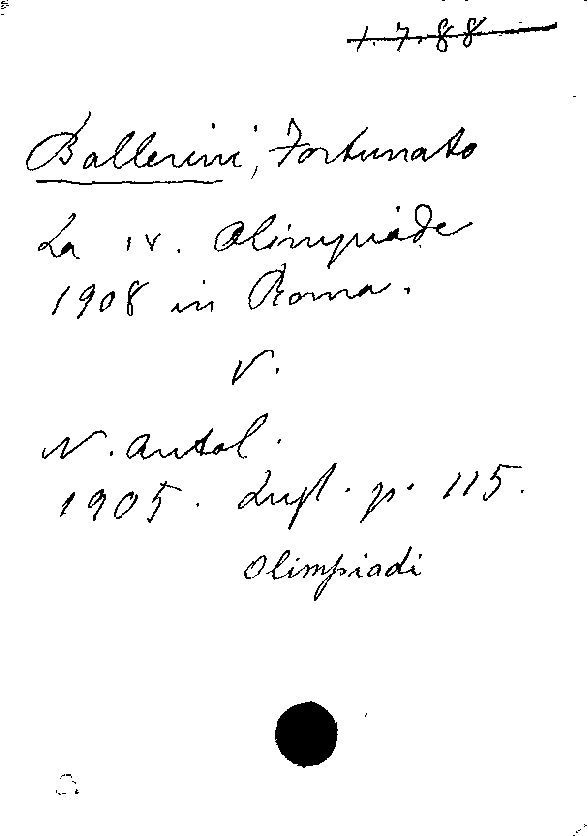 1.7.88
Ballerini, Fortunato
La IV. Olimpiade
1908 in Roma.
V.
N. Antol.
1905. Lugl. p. 115.
Olimpiadi